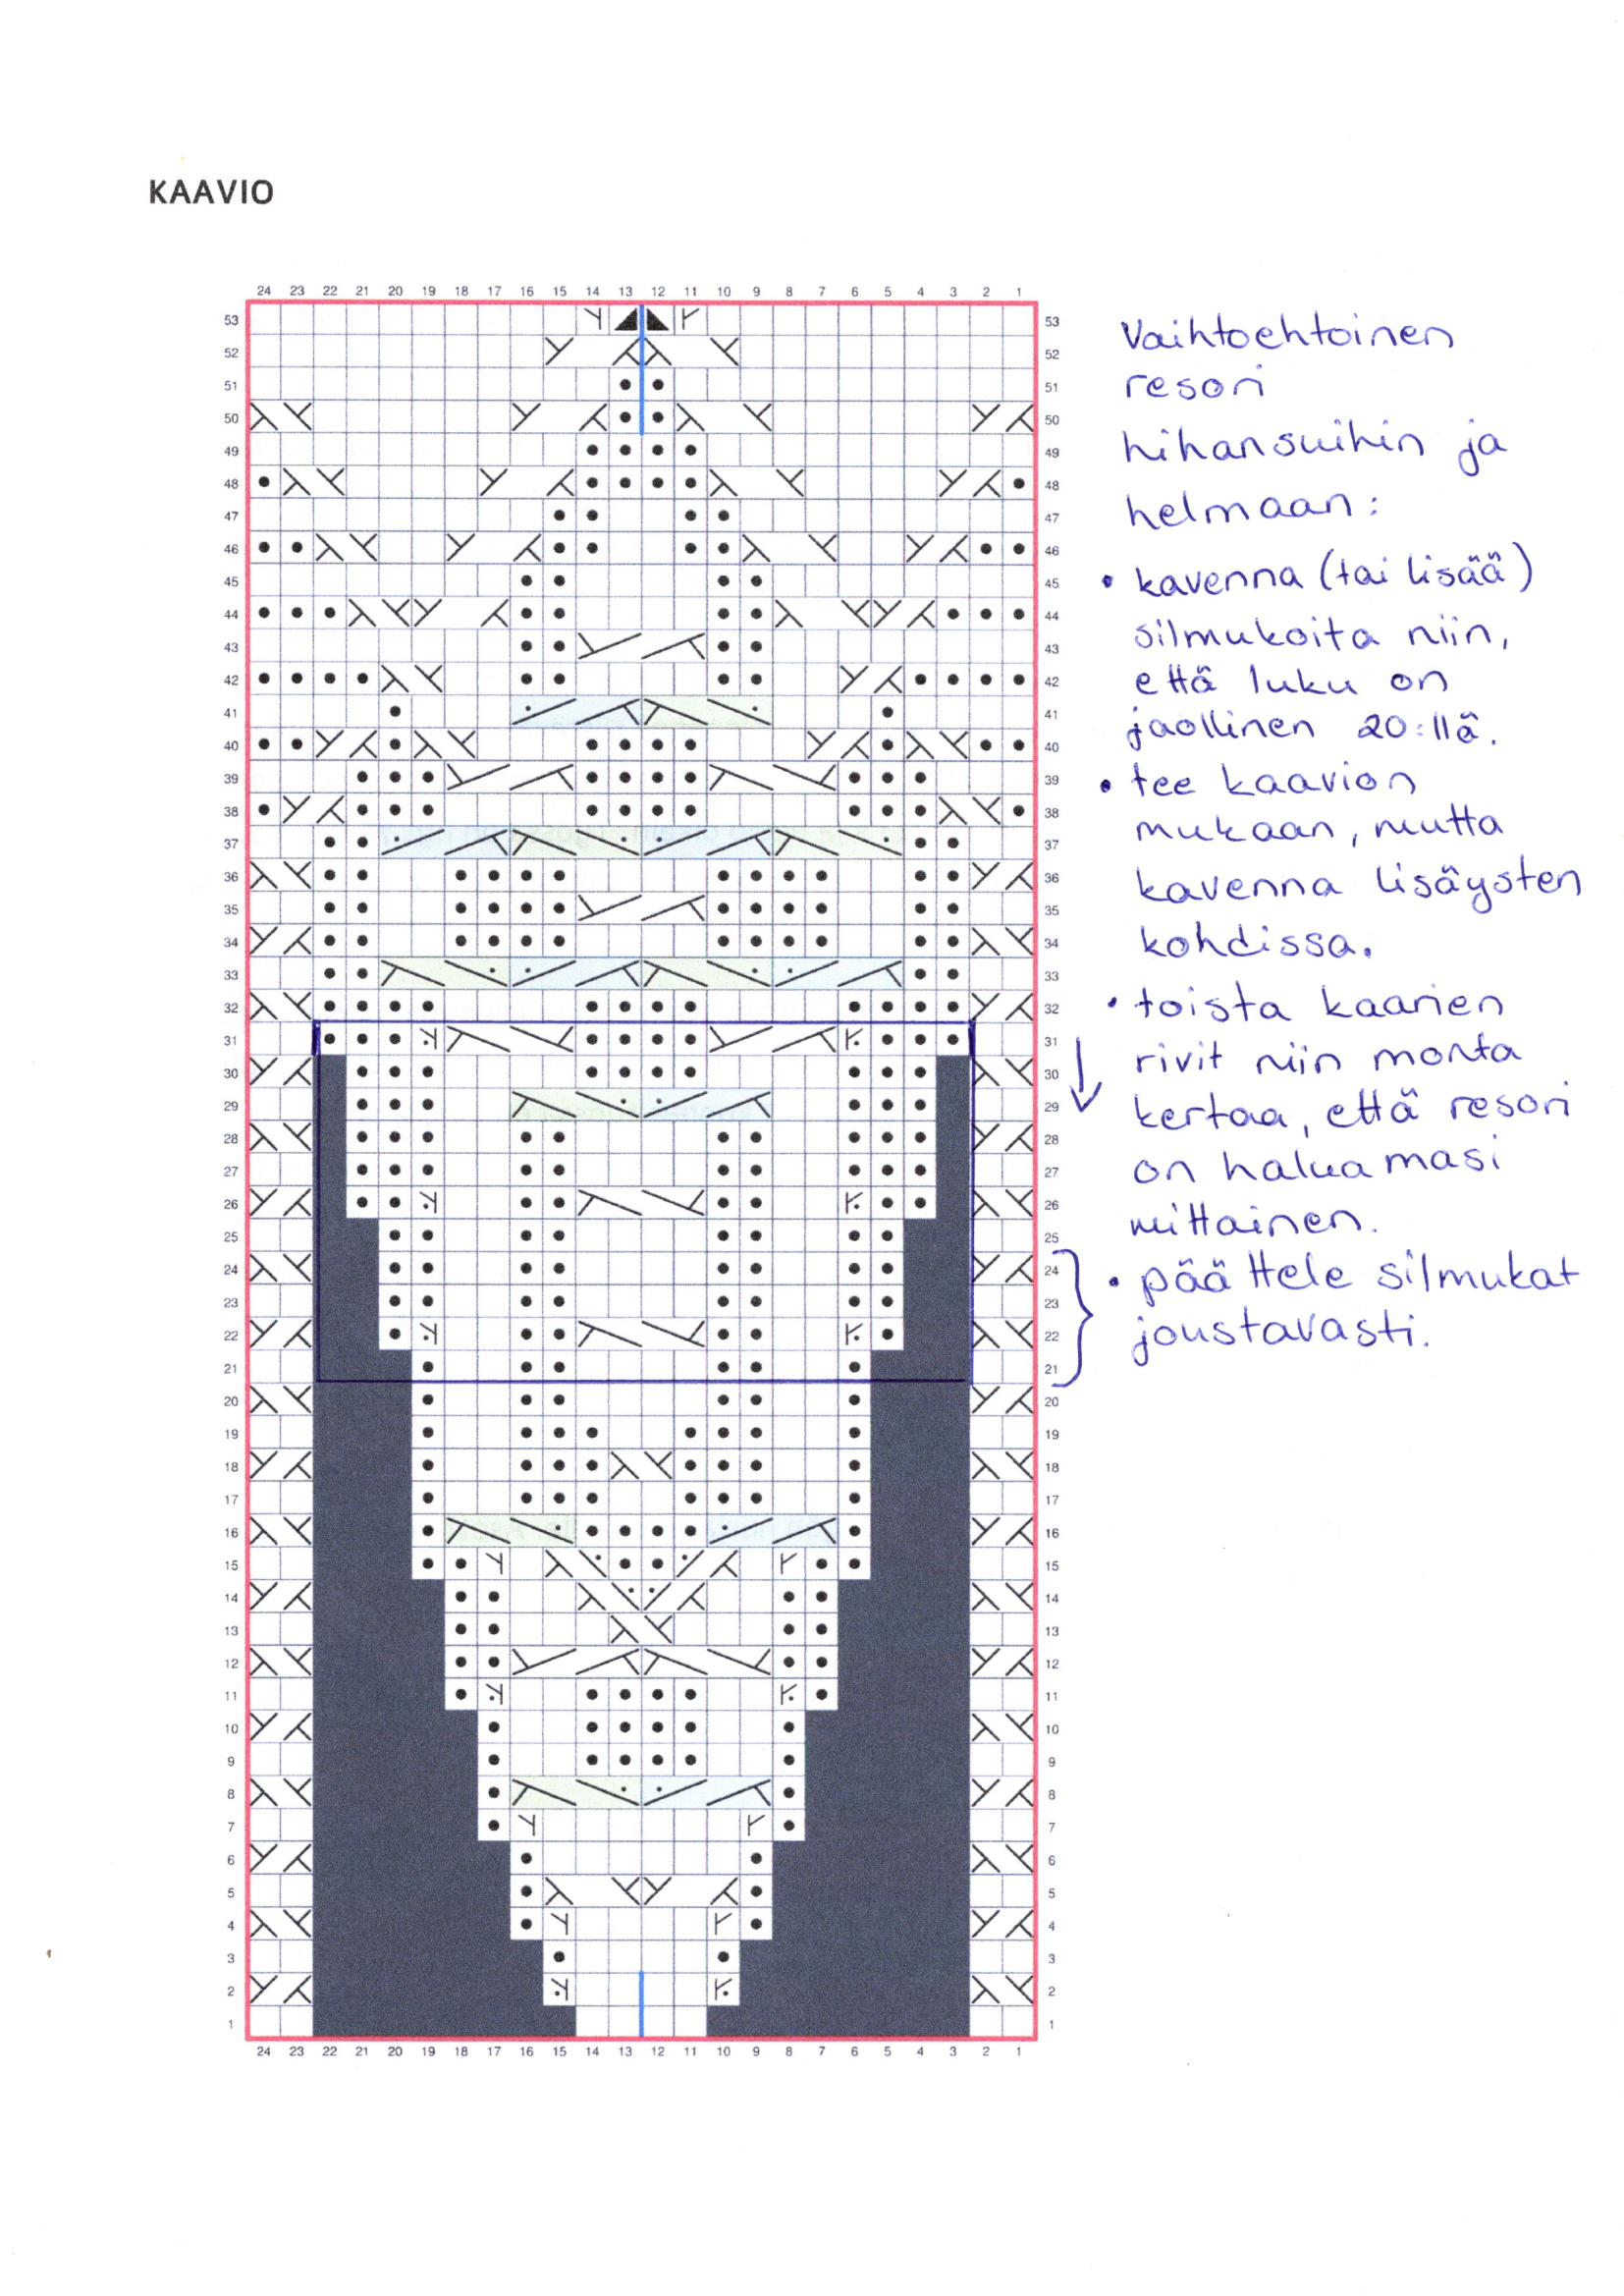 KAAVIO
24 23 22 21 20 19 18 17 16 15 14 13 12 11 10 9 8 7 6 5 4 3 2 1
53 53
52 52
51 51
50 50
49 49
48 48
47 47
46 46
45 45
44 44
43 43
42 42
41 41
40 40
39 39
38 38
37 37
36 36
35 35
34 34
33 33
32 32
31 31
30 30
29 29
28 28
27 27
26 26
25 25
24 24
23 23
22 22
21 21
20 20
19 19
18 18
17 17
16 16
15 15
14 14
13 13
12 12
11 11
10 10
9 9
8 8
7 7
6 6
5 5
4 4
3 3
2 2
1 1
24 23 22 21 20 19 18 17 16 15 14 13 12 11 10 9 8 7 6 5 4 3 2 1
Vaihtoehtoinen
resori
hihansuihin ja
helmaan:
• kavenna (tai lisää)
silmukoita niin,
että luku on
jaollinen 20:llä.
• tee kaavion
mukaan, mutta
kavenna lisäysten
kohdissa.
• toista kaarien
rivit niin monta
kertaa, että resori
on haluamasi
mittainen.
• päättele silmukat
joustavasti.